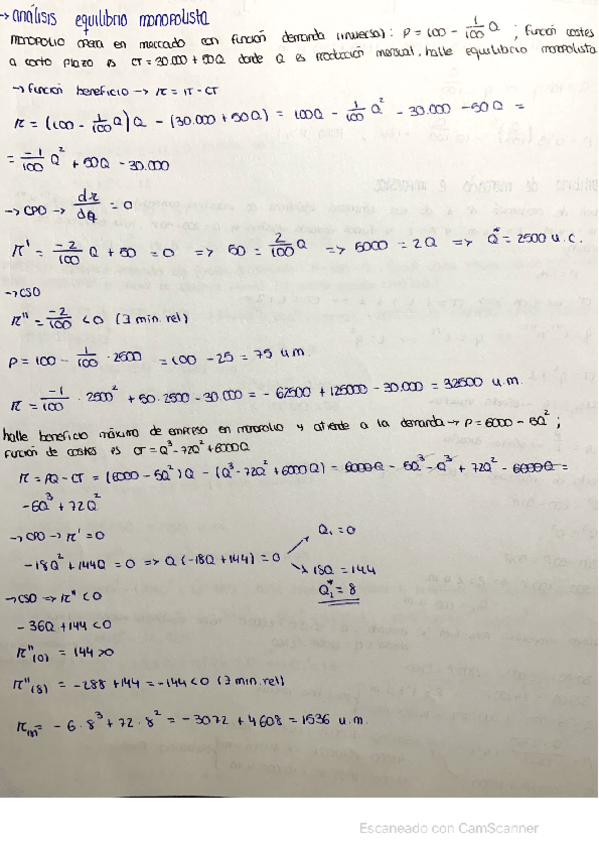 → análisis equilibrio monopolista
monopolio opera en mercado con función demanda (inversa): P = 100 - 1/100 Q ; función costes
a corto plazo es CT = 30.000 + 50Q donde Q es producción mensual. halle equilibrio monopolista
→ función beneficio → π = IT - CT
π = (100 - 1/100 Q) Q - (30.000 + 50Q) = 100Q - 1/100 Q² - 30.000 - 50Q =
= -1/100 Q² + 50Q - 30.000
→ CPO → dπ/dQ = 0
π' = -2/100 Q + 50 = 0 => 50 = 2/100 Q => 5000 = 2Q => Q* = 2500 u.c.
→ CSO
π'' = -2/100 < 0 (∃ min. rel)
P = 100 - 1/100 · 2500 = 100 - 25 = 75 u.m.
π = -1/100 · 2500² + 50 · 2500 - 30.000 = - 62500 + 125000 - 30.000 = 32500 u.m.
halle beneficio máximo de empresa en monopolio y atiende a la demanda → P = 6000 - 5Q² ;
función de costes es CT = Q³ - 72Q² + 6000Q
π = PQ - CT = (6000 - 5Q²) Q - (Q³ - 72Q² + 6000Q) = 6000Q - 5Q³ - Q³ + 72Q² - 6000Q =
-6Q³ + 72Q²
→ CPO → π' = 0
-18Q² + 144Q = 0 => Q (-18Q + 144) = 0
Q₁ = 0
18Q = 144
Q* = 8
→ CSO => π'' < 0
- 36Q + 144 < 0
π''(0) = 144 > 0
π''(8) = -288 + 144 = -144 < 0 (∃ min. rel)
π(8) = - 6 · 8³ + 72 · 8² = - 3072 + 4608 = 1536 u.m.
Escaneado con CamScanner